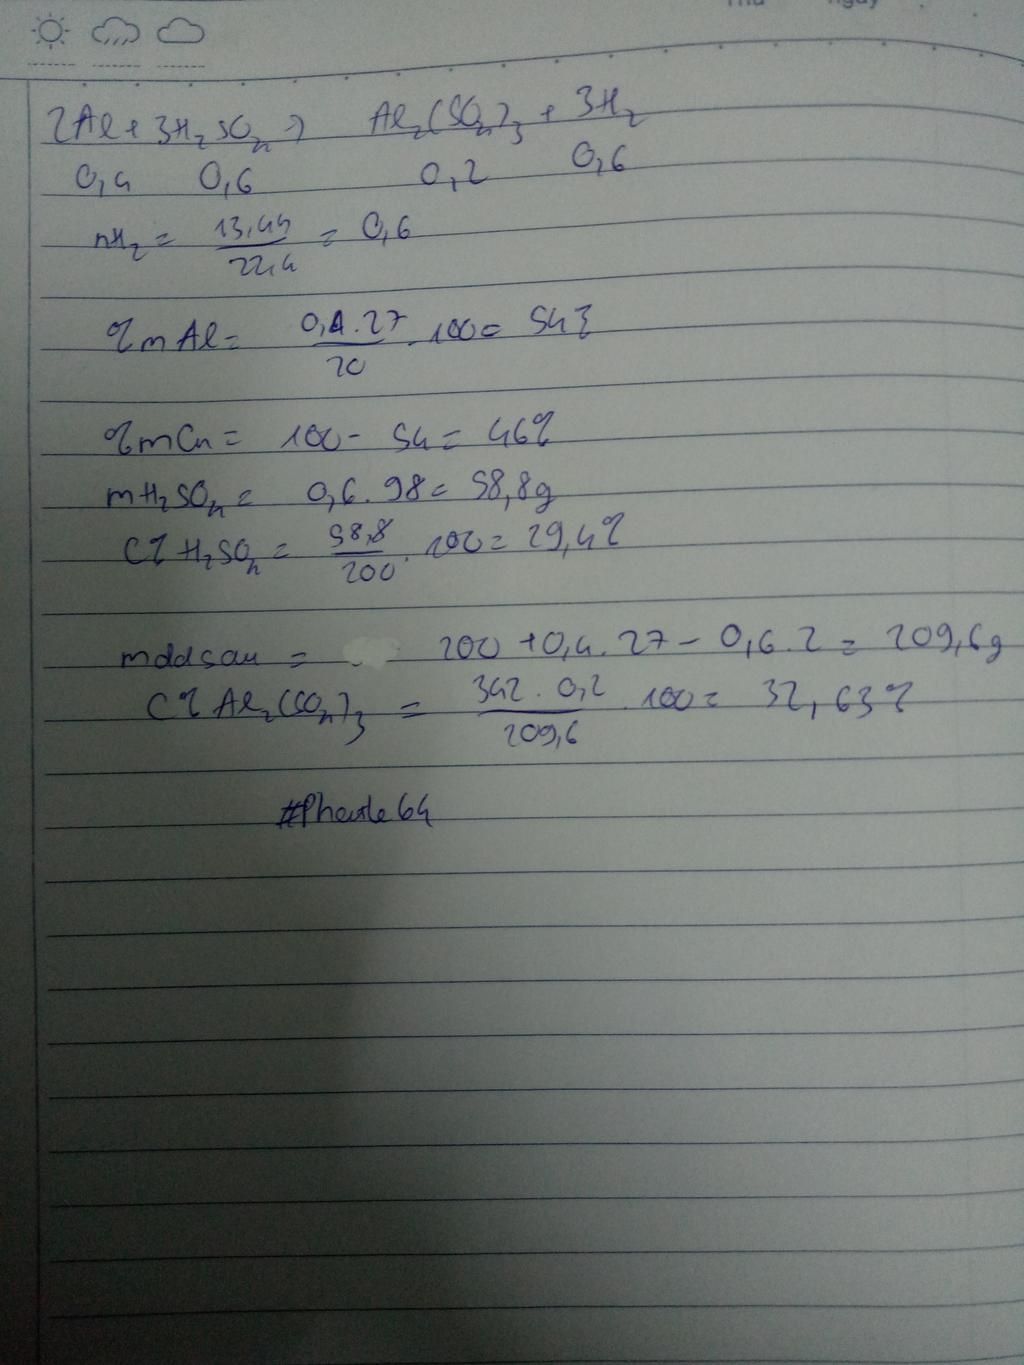 Thứ ngày
2Al + 3H₂SO₄ → Al₂(SO₄)₃ + 3H₂
0,4 0,6 0,2 0,6
nH₂ = 13,44/22,4 = 0,6
%mAl = 0,4.27/20 . 100 = 54%
%mCu = 100 - 54 = 46%
mH₂SO₄ = 0,6.98 = 58,8g
C% H₂SO₄ = 58,8/200 . 100 = 29,4%
mddsau = 200 + 0,4.27 - 0,6.2 = 209,6g
C% Al₂(SO₄)₃ = 342.0,2/209,6 . 100 = 32,63%